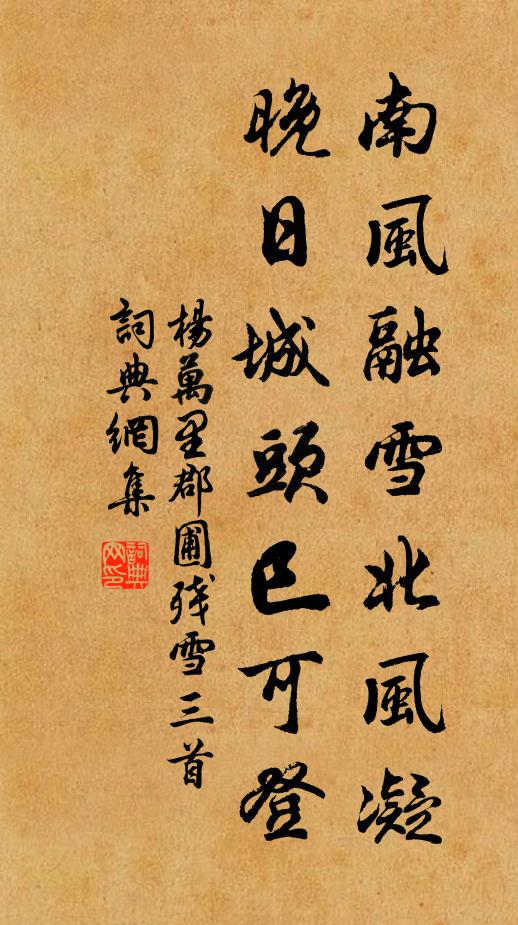 南風融雪北風凝
晚日城頭已可登
楊萬里郡圃殘雪三首
詞典網集
詞典網印